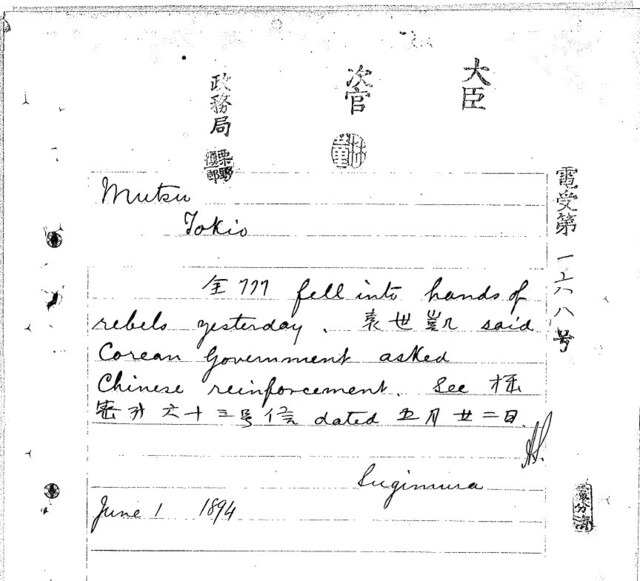 大臣
次官
政務局
電受第一六八号
Mutsu
Tokio
全州 fell into hands of
rebels yesterday. 袁世凱 said
Corean Government asked
Chinese reinforcement. See 機
密第六十三号信 dated 五月廿二日.
Sugimura
June 1 1894